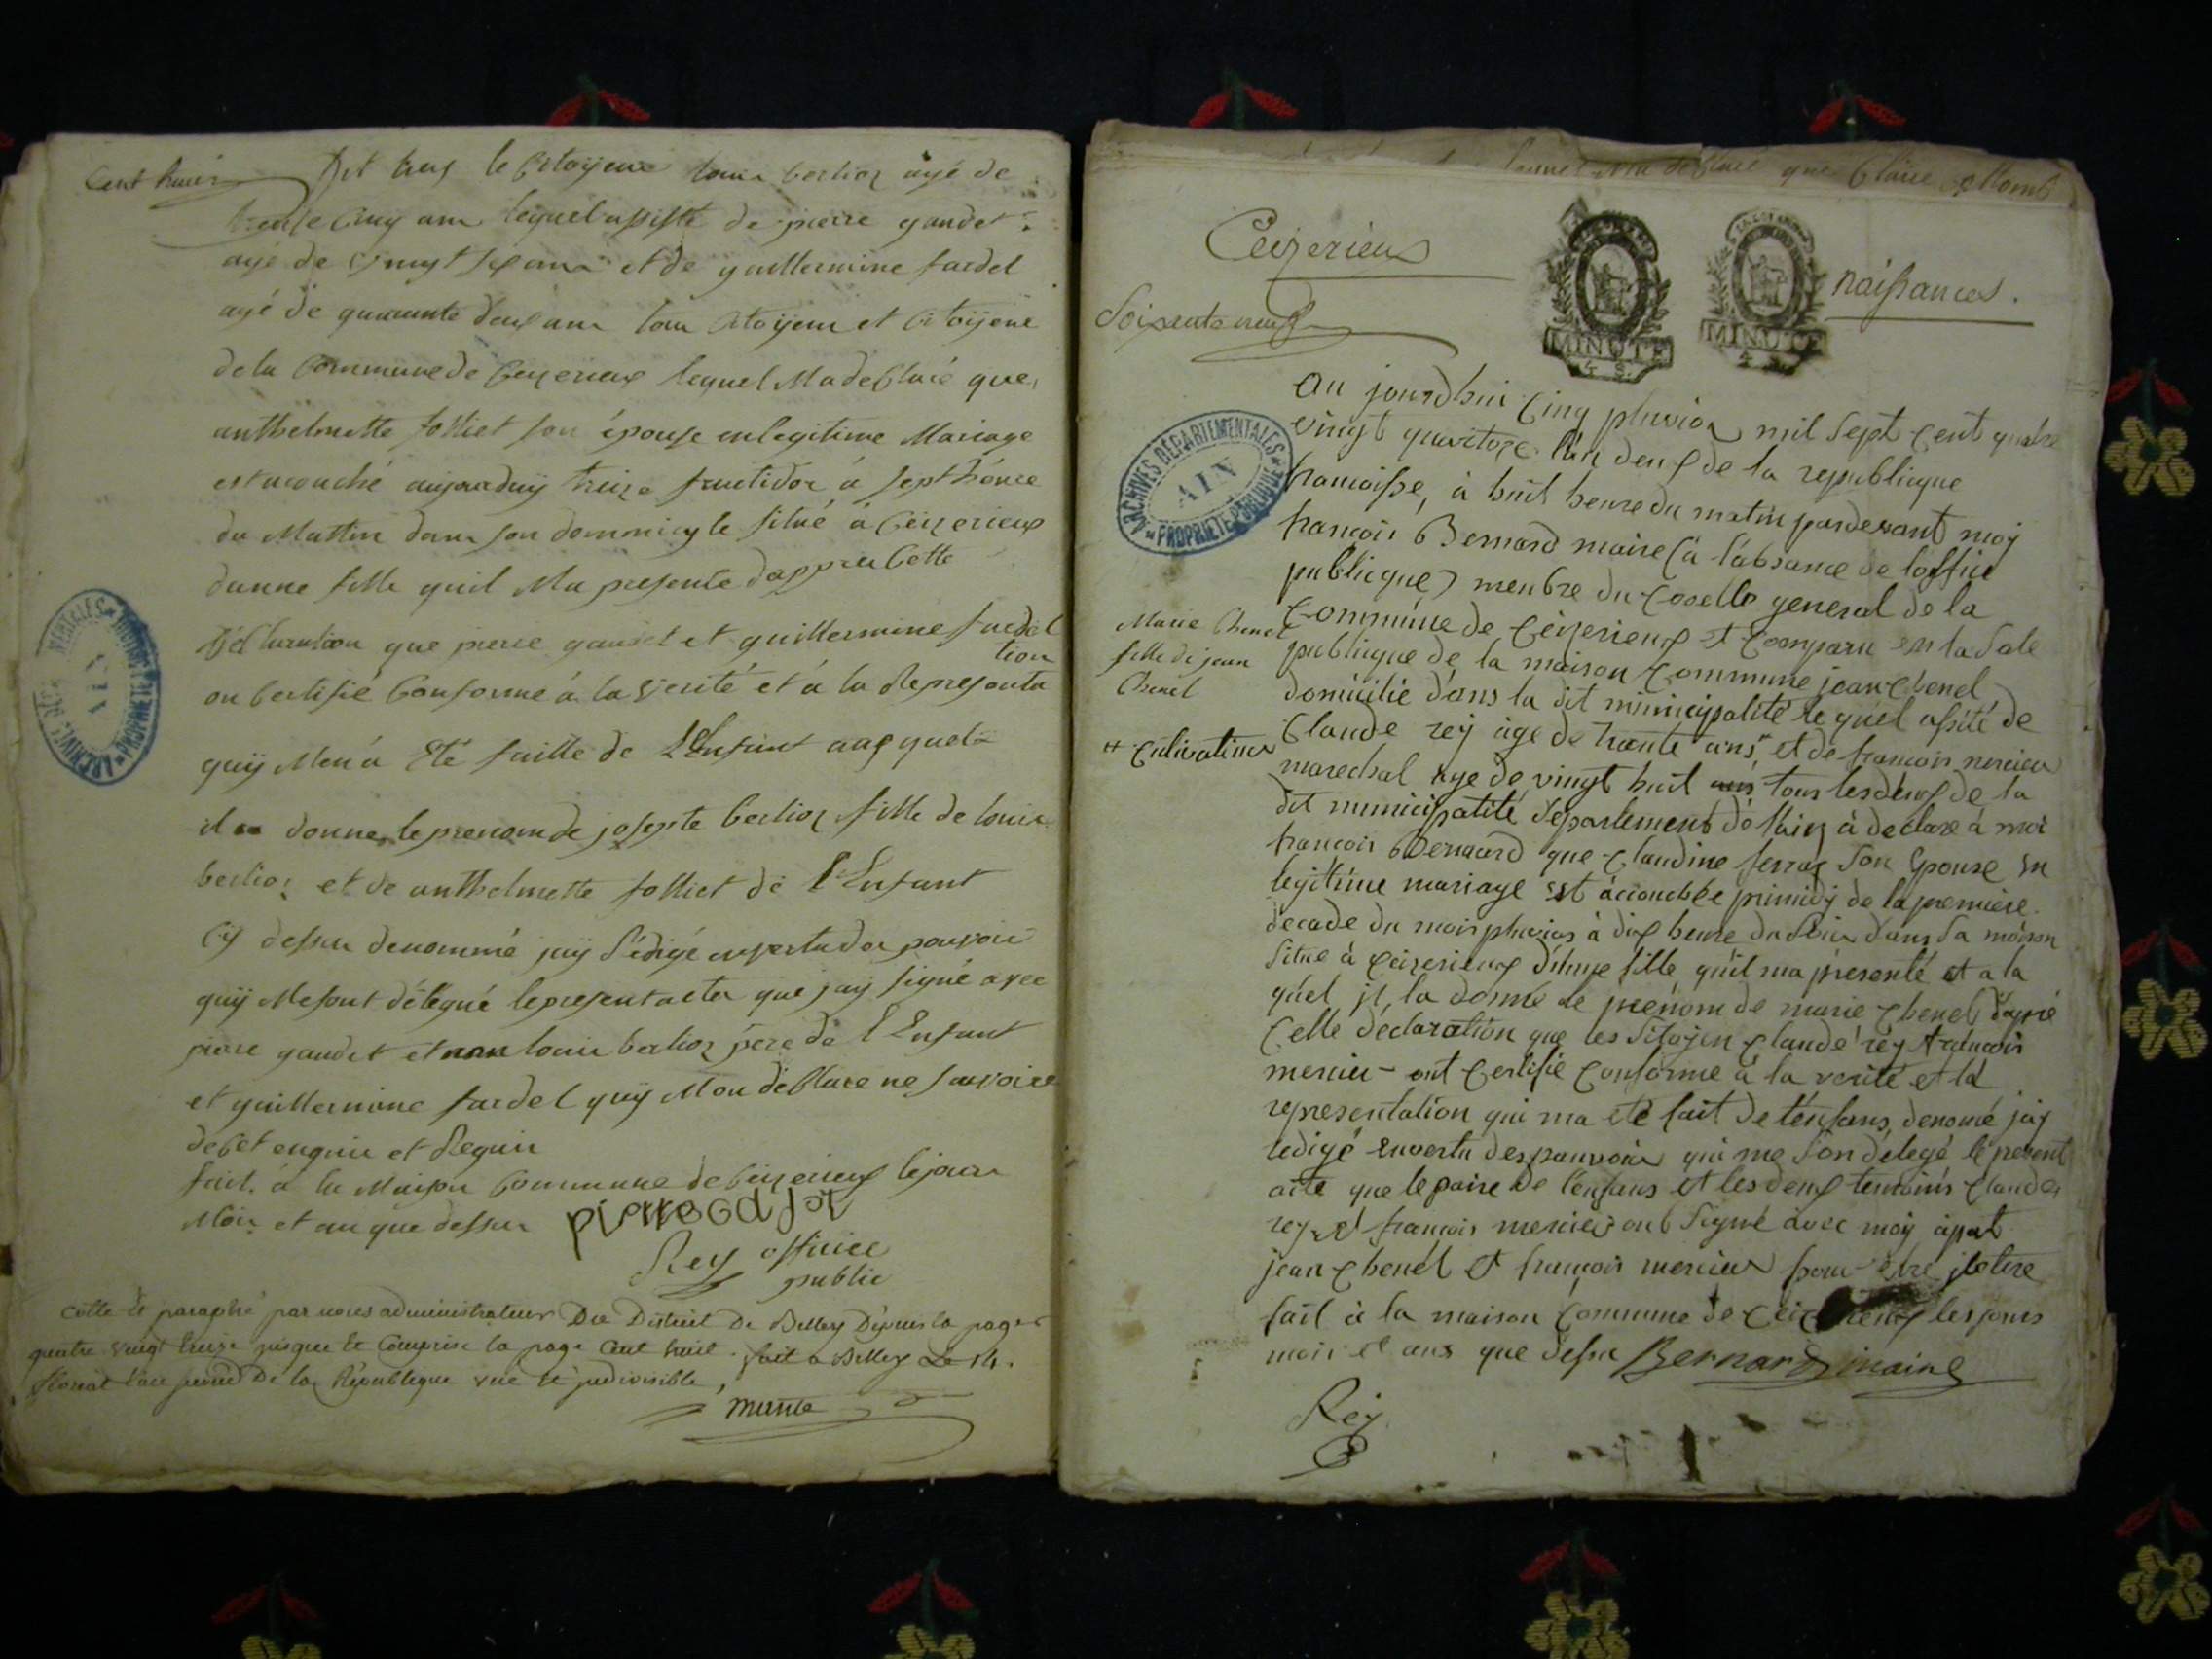 Cent huit
le Citoyen Louis berlioz agé de
trente cinq ans lequel assisté de pierre gaudet
agé de et de guillermine fardel
agé de quarante deux ans tous Citoyens et Citoÿene
de la Commune de Ceyzerieux lequel Ma déClaré que
anthelmette folliet son épouse en legitime Mariage
est acouché aujourduy treize fructidor á sept héure
du Mattin dans son dommicyle situé á Ceyzerieux
dunne fille quil Ma presenté dappres Cette
déClaration que pierre gaudet et guillermine fardel
tion
on Certifié Conforme á la verité et á la Representa
quÿ Men á Eté faitte de LEnfant a quel
il a donne le prenom de josepte berlioz fille de louis
berlioz et de anthelmette folliet de lEnfant
Cy dessus denommé jaÿ Rédigé en vertu des pouvoir
quÿ Me sont délégué le present acte que jaÿ signé avec
pierre gaudet et louis berlioz pére de lEnfant
et guillermine fardel quÿ Mon déClare ne savoire
de Cet enquis et Requis
fait á la Maison Commune de Ceyzerieux le jour
Mois et an que dessus
Rey officier
public
Cotté et paraphé par nous administrateur Du District De Belley Dépuis la page
quatre vingt treize jusque et Comprise la page Cent huit. fait a Belley Le 14.
floréal l'an second De la République une et indivisible,
ARCHIVES DÉPARTEMENTALES
AIN
PROPRIÉTÉ PUBLIQUE
que Claire
Ceizerieux
naissances.
MINUTE
4 S.
MINUTE
4 S.
Soixente neuf
ARCHIVES DÉPARTEMENTALES
AIN
PROPRIÉTÉ PUBLIQUE
au jourdhui cinq pluvios mil sept cent quatre
vingt quatorze l'an deux de la republicque
francoisse, à huit heure du matin pardevant moy
francois Bernard maire (à l'absance de l'officie
publicque) menbre du general de la
commune de ceizerieux et comparu en la sale
publicque de la maison commune jean chenel
domicilié dans la dit municipalité lequel assité de
claude rey age de trante ans et de francois mercier
marechal age de vingt huit ans tous les deux de la
dit municipalité departement de l'ain à declaré à moi
francois Bernard que claudine ferraz son epouse en
legitime mariage est accouchée primidy de la premiere
decade du mois pluvios à dix heure du soir dans sa maison
situe à ceizerieux d'une fille qu'il ma presenté et a la
quel il la donné le prenom de marie chenel d'apré
celle déclaration que les sitoyen claude rey et francois
mercier ont certifié conforme à la verité et la
representation qui ma eté fait de l'enfans denomé jay
redigé en vertu des pouvoir qui me son délegé le present
acte que le paire de l'enfans et les deux temoins claude
rey et francois mercier ont signé avec moy apart
jean chenel et francois mercier pour etre
fait à la maison commune de les jours
mois et ans que dessu Bernard maire
Rey
Marie Chenel
fille de jean
Chenel
cultivateur